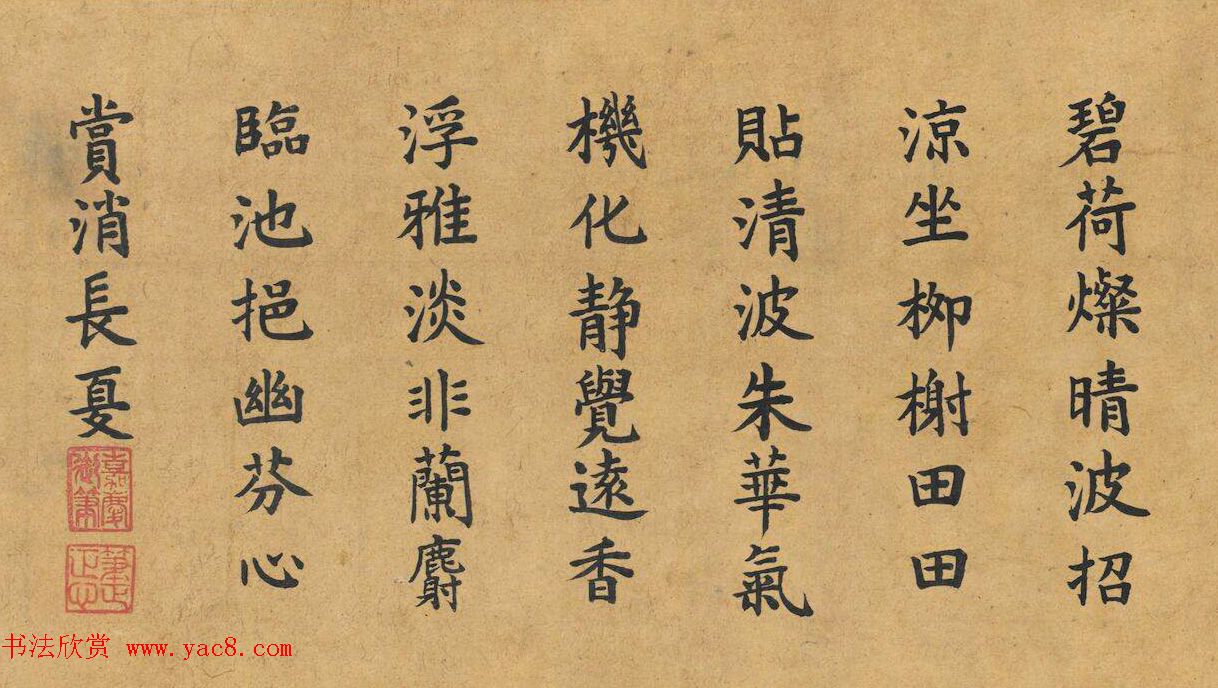 碧荷燦晴波招
涼坐桞榭田田
貼清波朱華氣
機化静覺逺香
浮雅淡非蘭麝
臨池挹幽芬心
賞消長夏
嘉慶御筆
筆正心正
书法欣赏 www.yac8.com